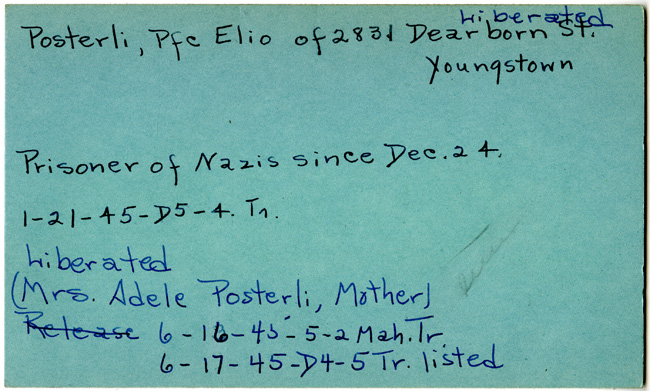 Liberated
Posterli, Pfc Elio of 2831 Dearborn St.
Youngstown
Prisoner of Nazis since Dec. 24.
1-21-45-D5-4. Tr.
Liberated
(Mrs. Adele Posterli, Mother)
Release 6-16-45-5-2 Mah. Tr.
6-17-45-D4-5 Tr. listed